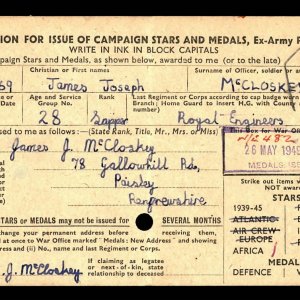 ION FOR ISSUE OF CAMPAIGN STARS AND MEDALS, Ex-Army P
WRITE IN INK IN BLOCK CAPITALS
Campaign Stars and Medals, as shown below, awarded to me (or to the late)
Christian or First names
Surname of Officer, soldier or
69
James Joseph
McCLOSKEY
Age and Service Group No.
Rank
Last Regiment or Corps according to cap badge worn
Branch; Home Guard to insert H.G. with County
28
Sapper
Royal Engineers
used to me as follows:— (State Rank, Title, Mr., Mrs. or Miss)
This Box for War Office
James J. McCloskey
78 Gallowhill Rd,
Paisley
Renfrewshire
26 MAY 1949
MEDALS
Strike out items w
NOT
or MEDALS may not be issued for SEVERAL MONTHS
STARS
change your permanent address before
return of War Office marked " Medals:
" Medals: New Address " and showing
s) and name, and last Regiment or Corps.
1939-45
ATLANTIC
AIR CREW
EUROPE
AFRICA
J. McCloskey
If claiming as legatee
or next-of-kin, state
relationship to deceased
MEDALS
DEFENCE